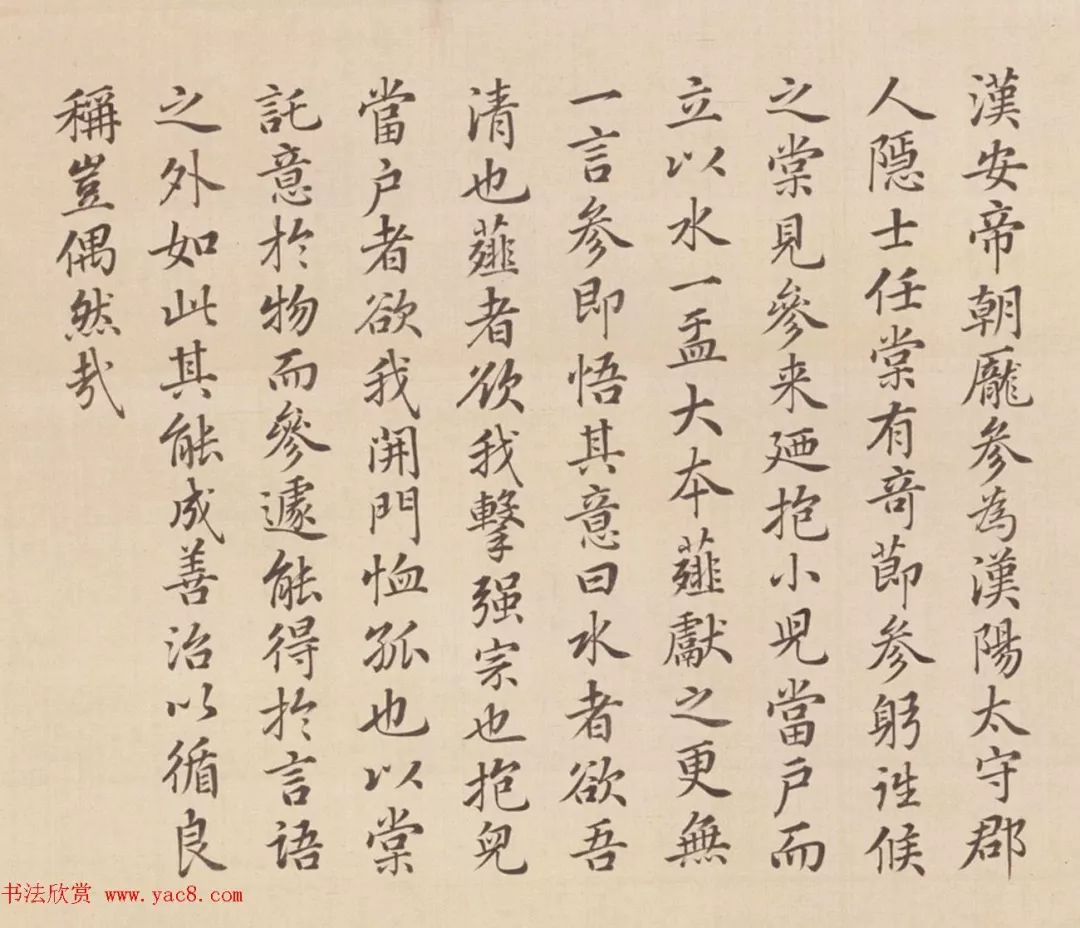 漢安帝朝龐参為漢陽太守郡
人隠士任棠有竒莭参躬詣候
之棠見參来廼抱小児當戸而
立以水一盂大本薤獻之更無
一言参即悟其意曰水者欲吾
清也薤者欲我擊强宗也抱兒
當户者欲我開門恤孤也以棠
託意於物而參遽能得於言語
之外如此其能成善治以循良
稱豈偶然哉
书法欣赏 www.yac8.com